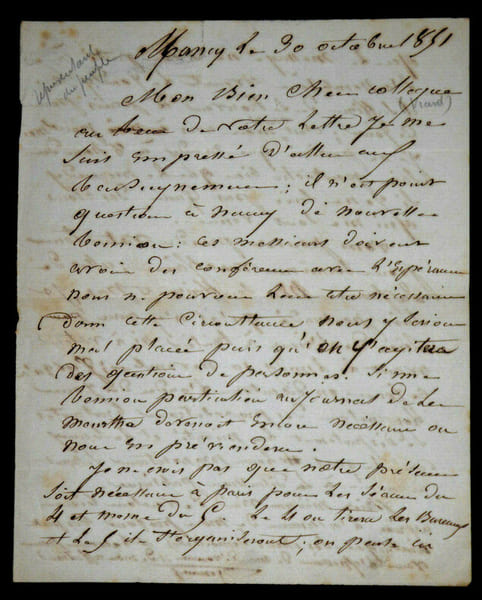 Nancy Le 30 octobre 1851
représentant
du peuple
Mon Bien Cher collegue
(Viard)
au reçu de votre Lettre Je me
suis empressé d'aller aux
Renseignemens ; il n'est point
question à nancy de nouvelle
Reunion : ces messieurs doivent
avoir des conférence avec L'Espérance
nous ne pouvons Leur etre nécessaire
dans cette Circonstance nous y serions
mal placée puis qu'on s'agitera
des questions de personnes. Si une
Reunion particuliere au Journal de La
meurthe devenoit Encore nécessaire on
nous En préviendra.
Je ne crois pas que notre présence
soit nécessaire à paris pour Les séances du
4 et meme du 5. Le 4 on tirera Les Bureaux
et Le 5 ils s'organiseront ; on parle ici